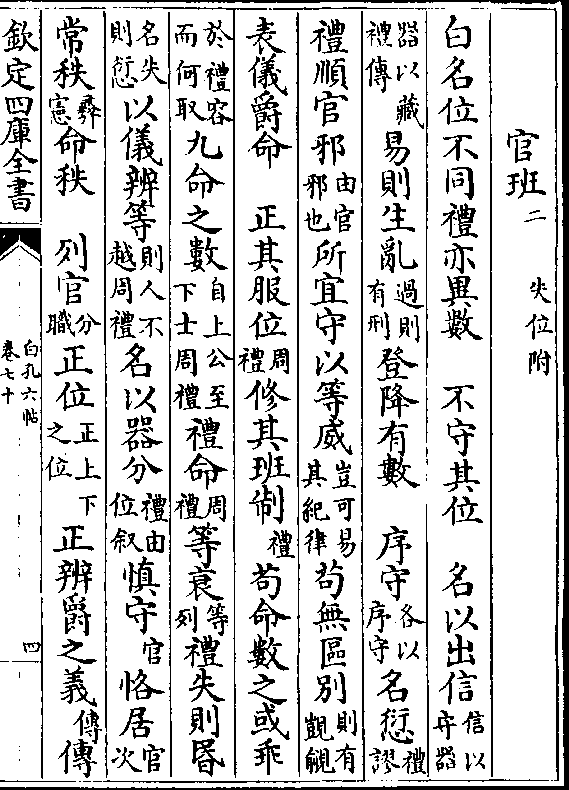 官班二 失位附
白名位不同禮亦異數 不守其位 名以出信信以守器
器以藏禮傳易則生亂過則有刑登降有數 序守各以序守名愆禮謬
禮順官邪由官邪也所宜守以等威豈可易其紀律苟無區別則有覬覦
表儀爵命 正其服位周禮修其班制禮苟命數之或乖
於禮容而何取九命之數自上公至下士周禮禮命周禮等衰等列禮失則昬
名失則愆以儀辨等則人不越周禮名以器分禮由位叙慎守官恪居官次
常秩彞憲命秩 列官分職正位正上下之位正辨爵之義傳傳
欽定四庫全書
白孔六帖
卷七十
四